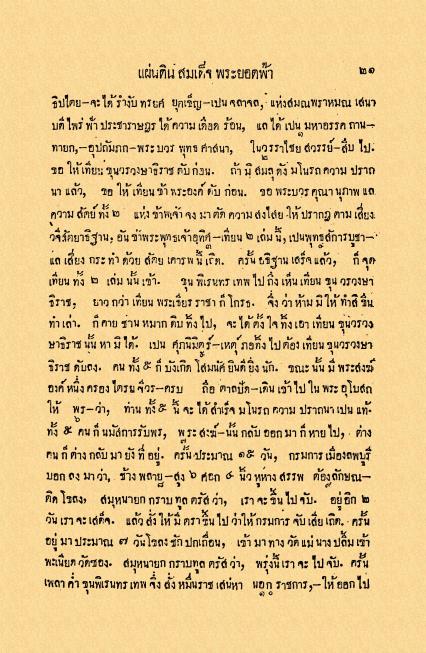 แผ่นดิน สมเด็จ พระยอดฟ้า ๒๑
ธิปไตย—จะได้ รำงับ ทรยศ ยุคเข็ญ—เปน จลาจล, แห่งสมณพราหมณ เสนา
บดี ไพร่ ฟ้า ประชาราษฎร ได้ ความ เดือด ร้อน, แล ได้ เปน มหาอรรค ถาน—
ทายก,—อุปถัมภก—พระ บวร พุทธ ศาสนา, ในวรราไชย สวรรย์—สืบ ไป.
ขอ ให้ เทียน ขุนวรวงษาธิราช ดับ ก่อน. ถ้า มิ สมลุ ดัง มโนรถ ความ ปราถ
นา แล้ว, ขอ ให้ เทียน ข้า พระองค์ ดับ ก่อน. ขอ พระบวร คุณา นุภาพ แล
ความ สัตย์ ทั้ง ๒ แห่ง ข้าพเจ้า จง มา ตัด ความ สงไสย ให้ ปรากฎ ตาม เสี่ยง
วจีสัตยาธิฐาน, อัน ข้าพระพุทธเจ้าอุทิศ—เทียน ๒ เล่ม นี้, เปนพุทธสักการบูชา—
แล เสี่ยง กระทำ ด้วย สัตย เคารพ นี้ เถิด. ครั้น อธิฐาน เสร็จ แล้ว, ก็ จุด
เทียน ทั้ง ๒ เล่ม นั้น เข้า. ขุน พิเรนทร เทพ ไป ถึง เห็น เทียน ขุน วรวงษา
ธิราช, ยาว กว่า เทียน พระเธียร ราชา ก็ โกรธ. จึ่ง ว่า ห้าม มิ ให้ ทำ สิ ขืน
ทำ เล่า. ก็ คาย ชาน หมาก ดิบ ทิ้ง ไป, จะ ได้ ตั้ง ใจ ทิ้ง เอา เทียน ขุน วรวง
ษาธิราช นั้น หา มิ ได้. เปน ศุภนิมิตร์—เหตุ ภอทิ้ง ไป ต้อง เทียน ขุนวรวงษา
ธิราช ดับลง. คน ทั้ง ๕ ก็ บังเกิด โสมนัศ ยินดี ยิ่ง นัก. ขณะ นั้น มี พระสงฆ์
องค์ หนึ่ง ครอง ไตรย จีวร—ครบ ถือ ตาลปัต—เดิน เข้า ไป ใน พระ อุโบสถ
ให้ พร—ว่า, ท่าน ทั้ง ๕ นี้ จะ ได้ สำเร็จ มโนรถ ความ ปราถนา เปน แท้.
ทั้ง ๕ คน ก็ นมัสการ รับพร, พระ สงฆ—นั้น กลับ ออก มา ก็ หาย ไป, ต่าง
คน ก็ ต่าง กลับ มา ยัง ที่ อยู่. ครั้น ประมาณ ๑๕ วัน, กรมการ เมืองลพบุรี
บอก ลง มา ว่า, ช้าง พลาย—สูง ๖ ศอก ๔ นิ้ว หูหาง สรรพ ต้องลักษณ—
ติด โขลง, สมุหนายก กราบ ทูล ตรัส ว่า, เรา จะ ขึ้น ไป จับ. อยู่ อีก ๒
วัน เรา จะ เสด็จ. แล้ว สั่ง ให้ มี ตรา ขึ้น ไป ว่า ให้ กรมการ จับ เสีย เถิด. ครั้น
อยู่ มา ประมาณ ๗ วัน โขลง ชัก ปกเถื่อน, เข้า มา ทาง วัด แม่ นาง ปลื้ม เข้า
พะเนียด วัดซอง. สมุหนายก กราบทูล ตรัส ว่า, พรุ่งนี้ เรา จะ ไป จับ. ครั้น
เพลา ค่ำ ขุนพิเรนทร เทพ จึ่ง สั่ง หมื่นราช เสน่หา นอก ราชการ,—ให้ ออก ไป